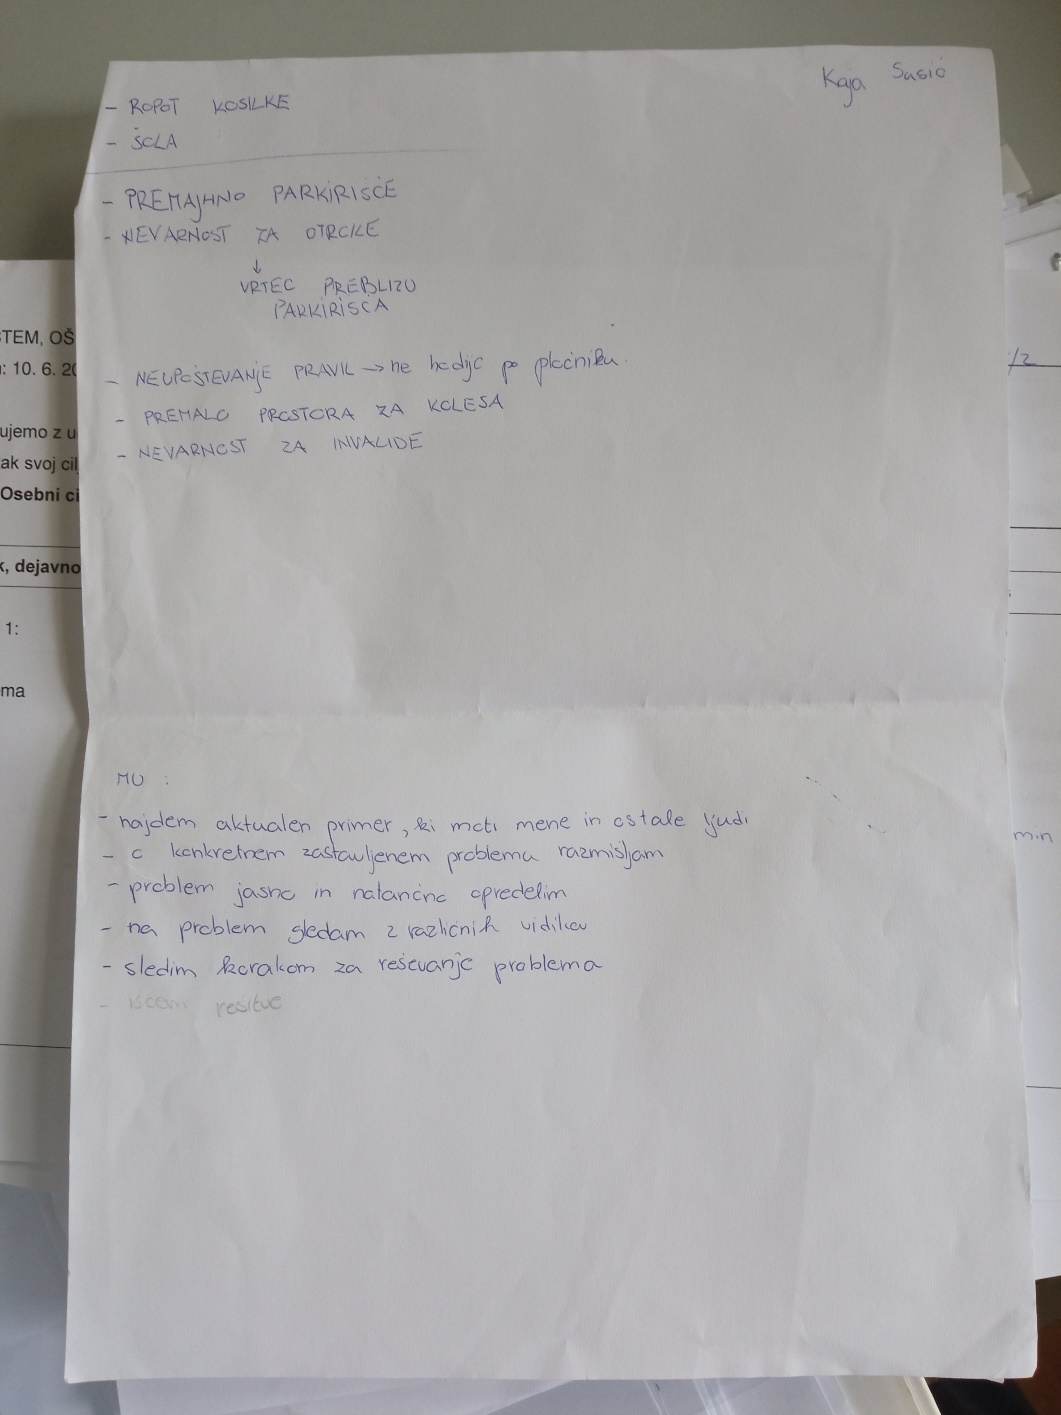 Kaja Susić
- ROPOT KOSILKE
- ŠOLA
- PREMAJHNO PARKIRIŠČE
- NEVARNOST ZA OTROKE
↓
VRTEC PREBLIZU
PARKIRIŠČA
- NEUPOŠTEVANJE PRAVIL → ne hodijo po pločniku.
- PREMALO PROSTORA ZA KOLESA
- NEVARNOST ZA INVALIDE
MU :
- najdem aktualen primer, ki moti mene in ostale ljudi
- o konkretnem zastavljenem problemu razmišljam
- problem jasno in natančno opredelim
- na problem gledam z različnih vidikov
- sledim korakom za reševanje problema
- iščem rešitve
STEM, OŠ
: 10. 6. 20
ujemo z u
ak svoj cilj
Osebni ci
k, dejavno
1:
ma
/2
min